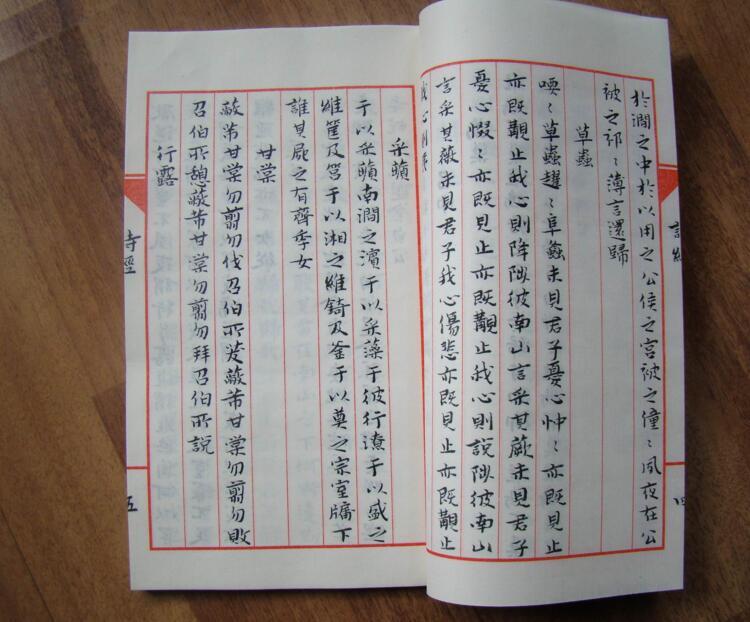 於澗之中於以用之公侯之宮被之僮〻夙夜在公
被之祁〻薄言還歸
草蟲
喓〻草蟲趯〻阜螽未見君子憂心忡〻亦既見止
亦既覯止我心則降陟彼南山言采其蕨未見君子
憂心惙〻亦既見止亦既覯止我心則說陟彼南山
言采其薇未見君子我心傷悲亦既見止亦既覯止
我心則夷
采蘋
于以采蘋南澗之濱于以采藻于彼行潦于以盛之
維筐及筥于以湘之維錡及釜于以奠之宗室牖下
誰其屍之有齊季女
甘棠
蔽芾甘棠勿翦勿伐召伯所茇蔽芾甘棠勿翦勿敗
召伯所憩蔽芾甘棠勿翦勿拜召伯所說
行露
詩經
五